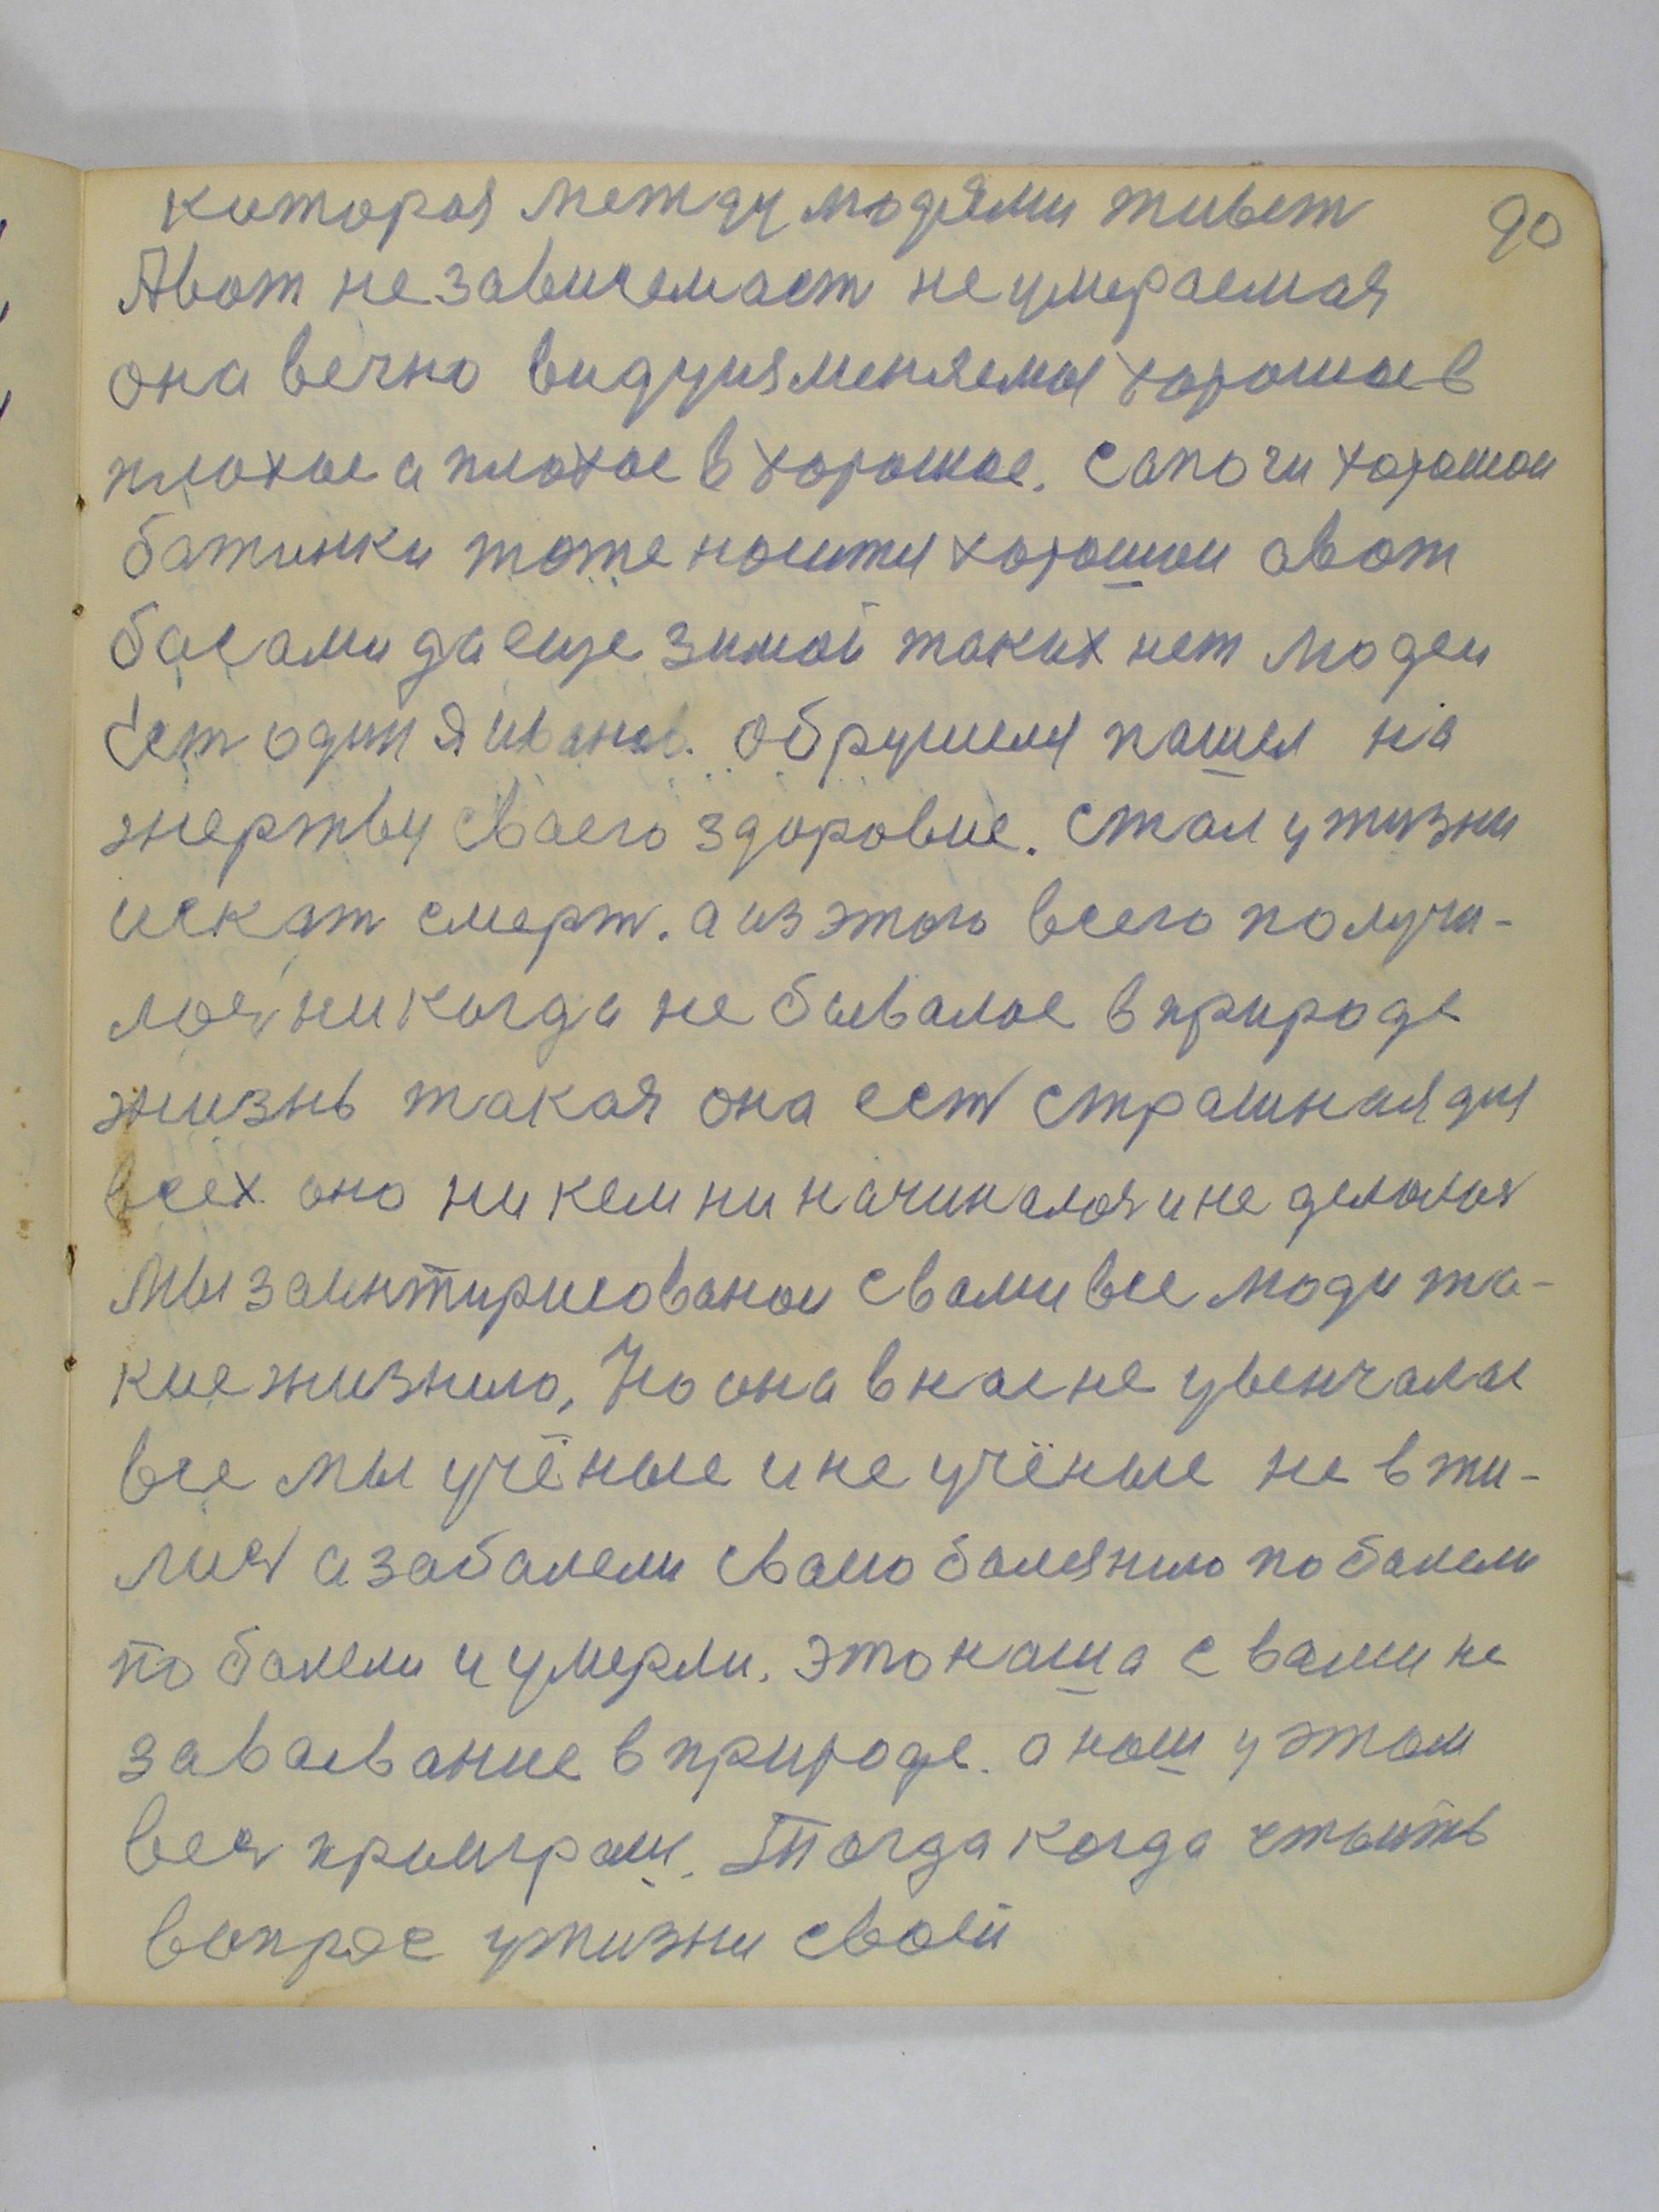 90
которая между людями живет
Авот не зависемаст не умераемая
она вечно видуизменяемая хорошаев
плохое а плохое в хорошее. сапоги хорошаи
батинки тоже носити хорошаи авот
басами да еще зимой таких нет людеи
ест один я иванов. обрушеля пашел на
жертву сваего здоровие. стал у жизни
искат смерт. а из этого всего получи-
лося никогда не бывалое в природе
жизнь такая она ест страшная для
всех оно ни кем ни начиналося и не делалося
Мы заинтирисованаи свами все люди та-
кие жизнию, Но она в нас не увенчалас
все мы учёные и не учёные не в жи-
лися а забалели сваио балезнию по балели
по балели и умерли. это наша с вами не
заваевание в природе. а наш у этом
вся проиграш. Тогда когда стоить
вопрос у жизни сваей